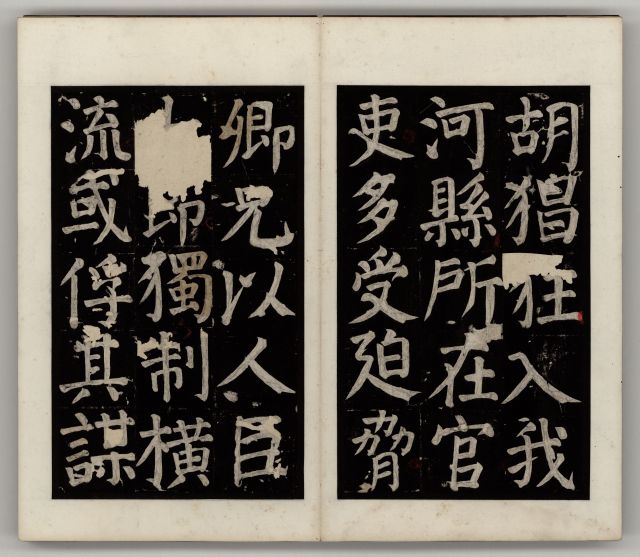 胡猖狂入我
河縣所在官
吏多受廹脅
卿兄以人臣
獨制橫
流或俘其謀